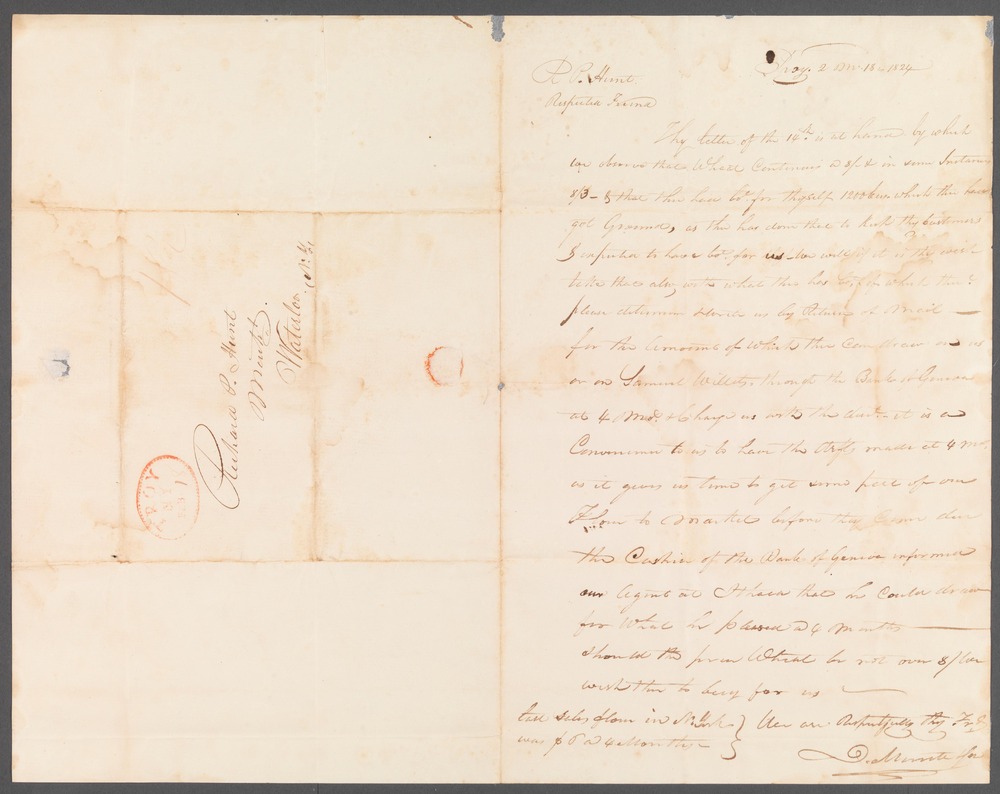 Troy. 2 Mo. 18th 1824
R P. Hunt
Respected Friend
Thy letter of the 14th is at hand by which
we observe that Wheat Continues a 8/- & in some Instances
8/3 - & that thee have bot. for thyself 1200 bus. which thee have
got Ground, as thee has done that to
& expected to have bot. for us - we will if it is thy wish
take that along with what thee has bot. for which thee
please determine & write us by Return of Mail —
for the Amount of Wheat thee Can draw on us
or on Samuel Willets, through the Bank of Geneva
at 4 Mos. & Charge us with the - it is a
Convenience to us to have the drfts made at 4 Mos.
as it gives us time to get some part of our
Flour to Market before they Come due
the Cashier of the Bank of Geneva informed
our Agent at Ithaca that he Could draw
for What he passed a 4 Months —
should the price Wheat be not over 8/ We
wish thee to buy for us —
last sales flour in N. York } We are Respectfully thy Frd.
was $6 a 4 Months -
D. Merritt
Richard P. Hunt
Mercht.
Waterloo. N.Y.
TROY